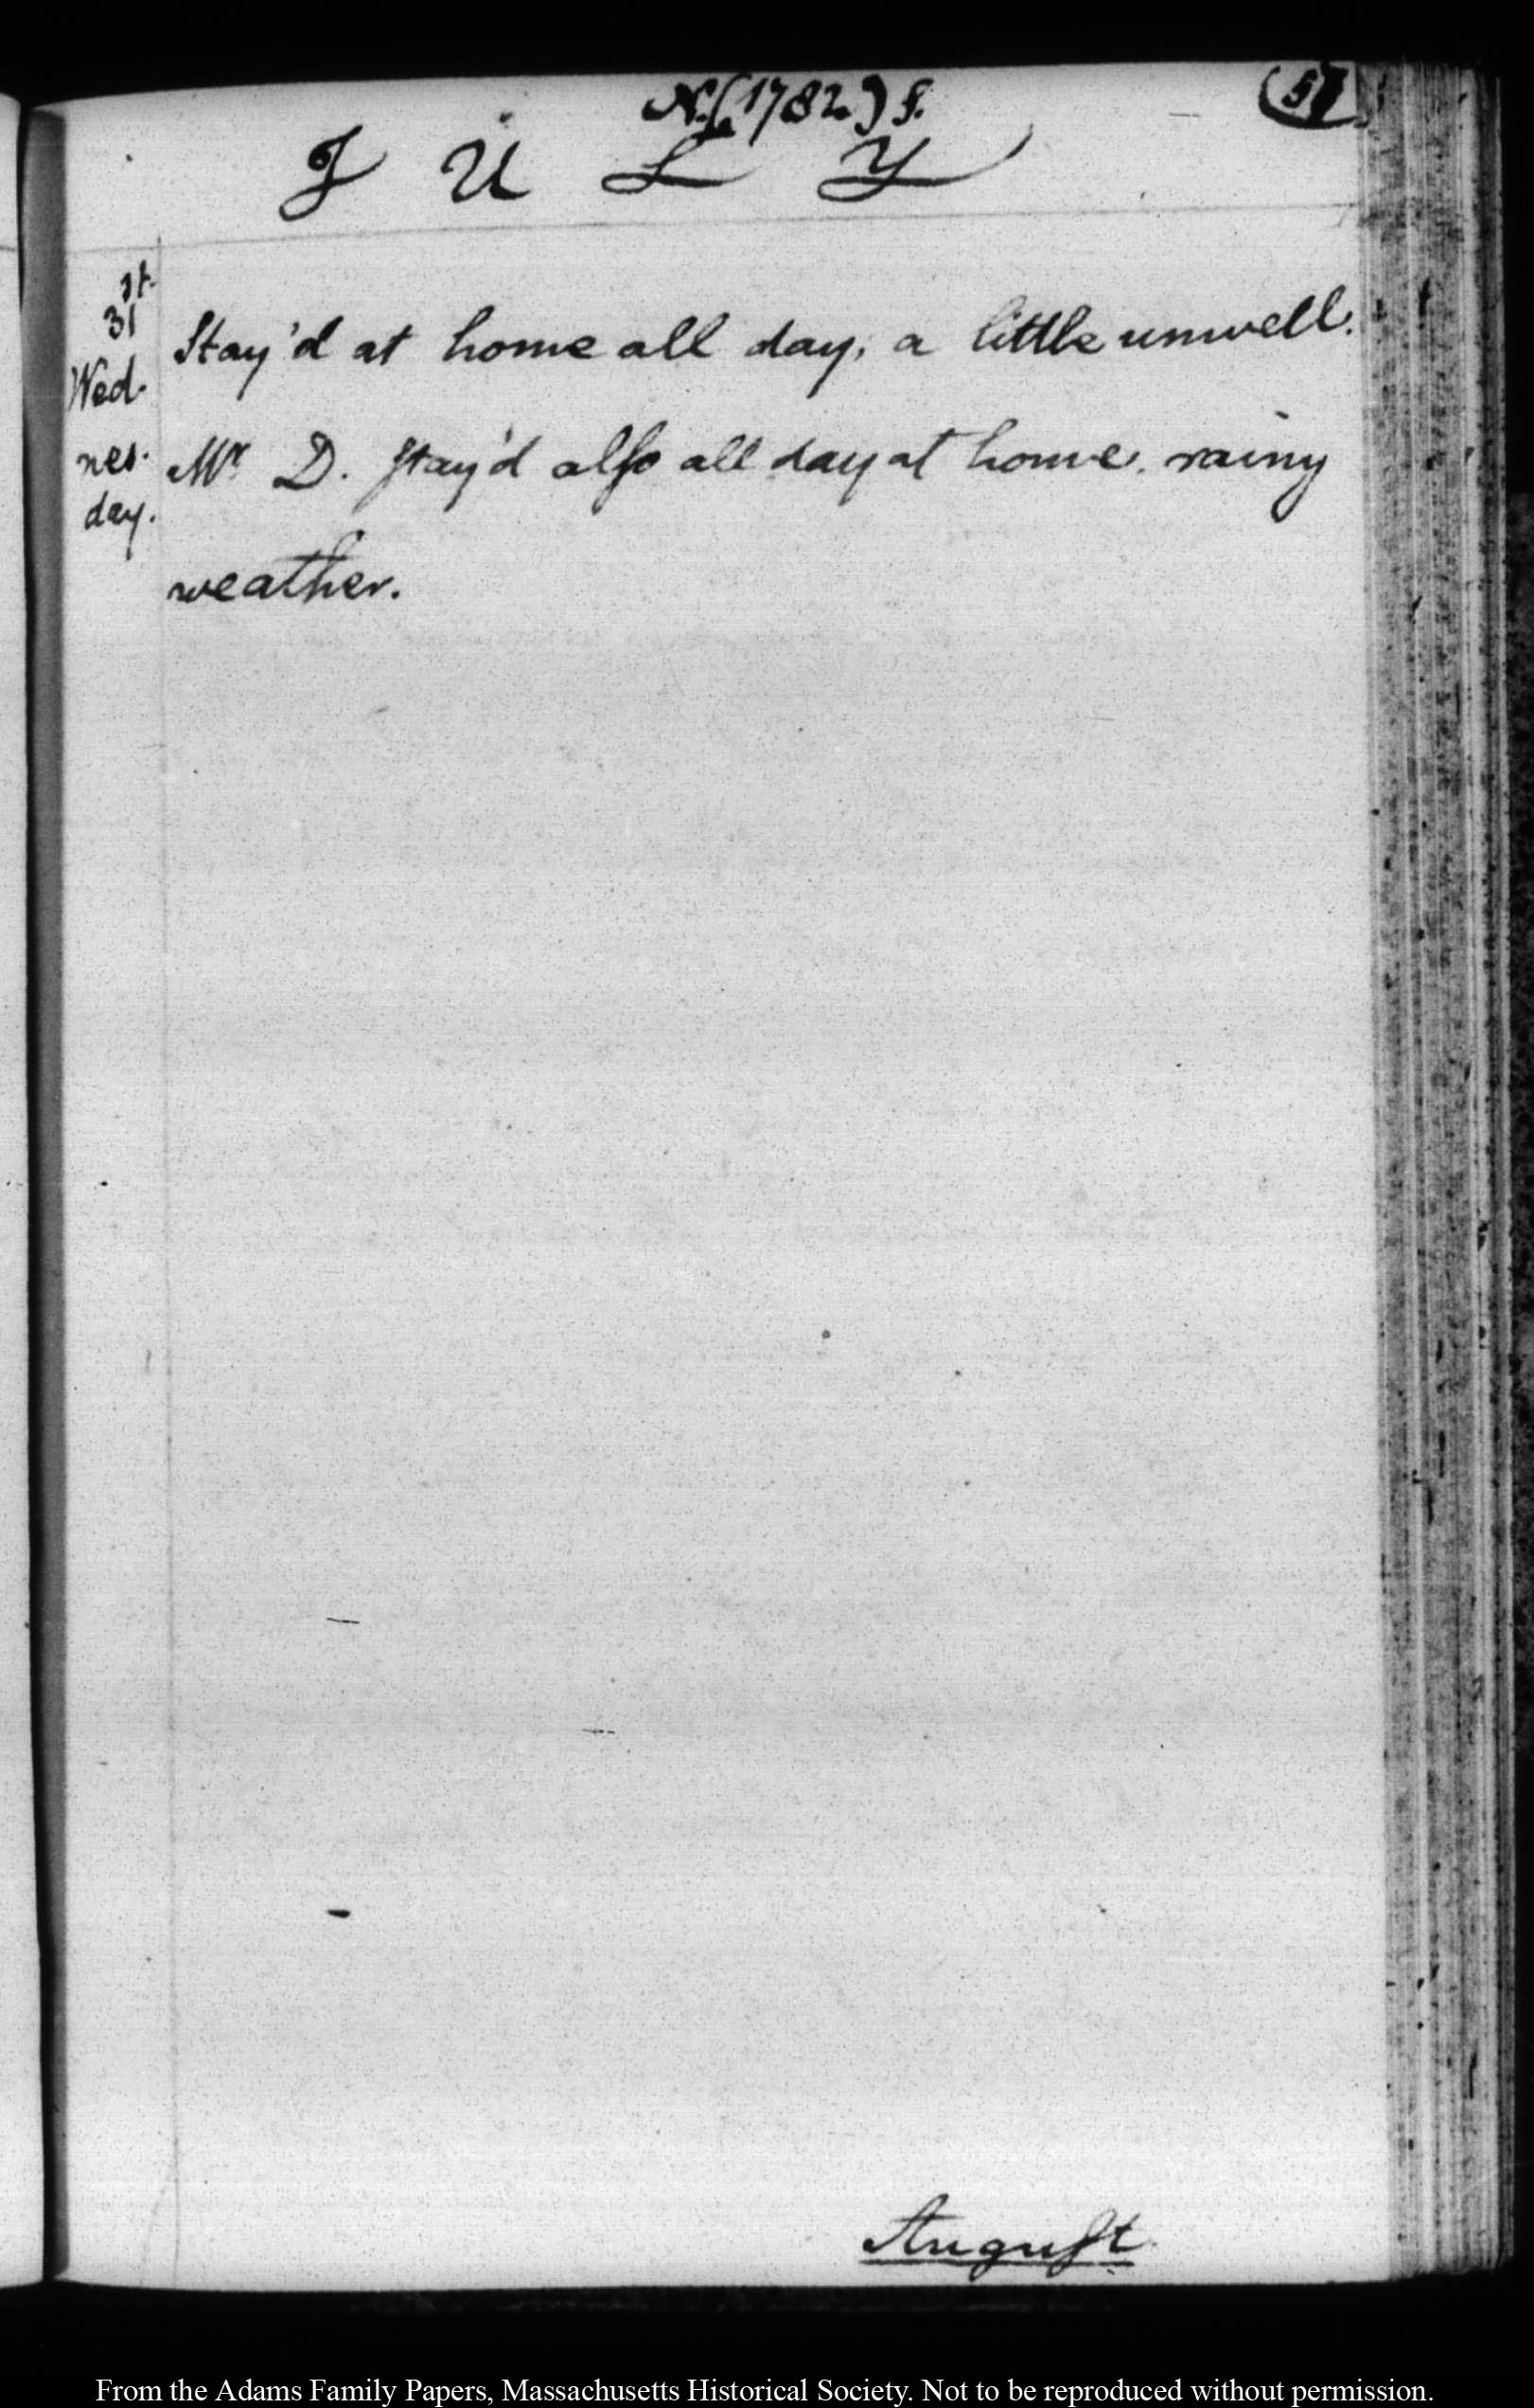 N.(1782.) S.
(57
J U L Y
31st.
Wed-
nes-
day.
Stay'd at home all day; a little unwell.
Mr D. stay'd also all day at home. rainy
weather.
August
From the Adams Family Papers, Massachusetts Historical Society. Not to be reproduced without permission.